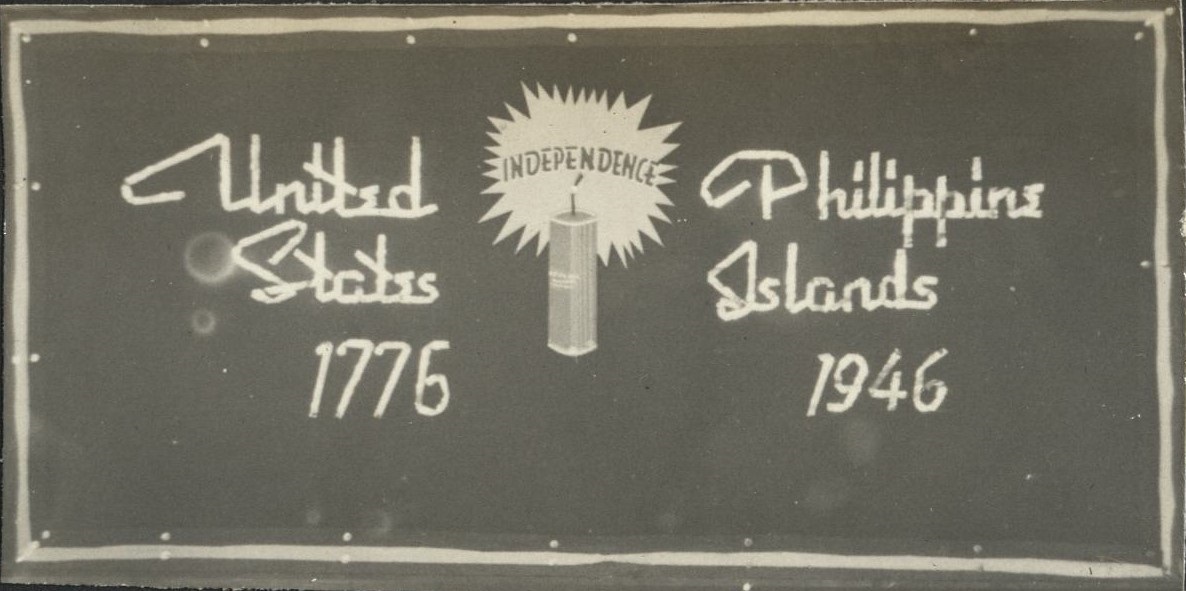 United
States
1776
INDEPENDENCE
Philippine
Islands
1946